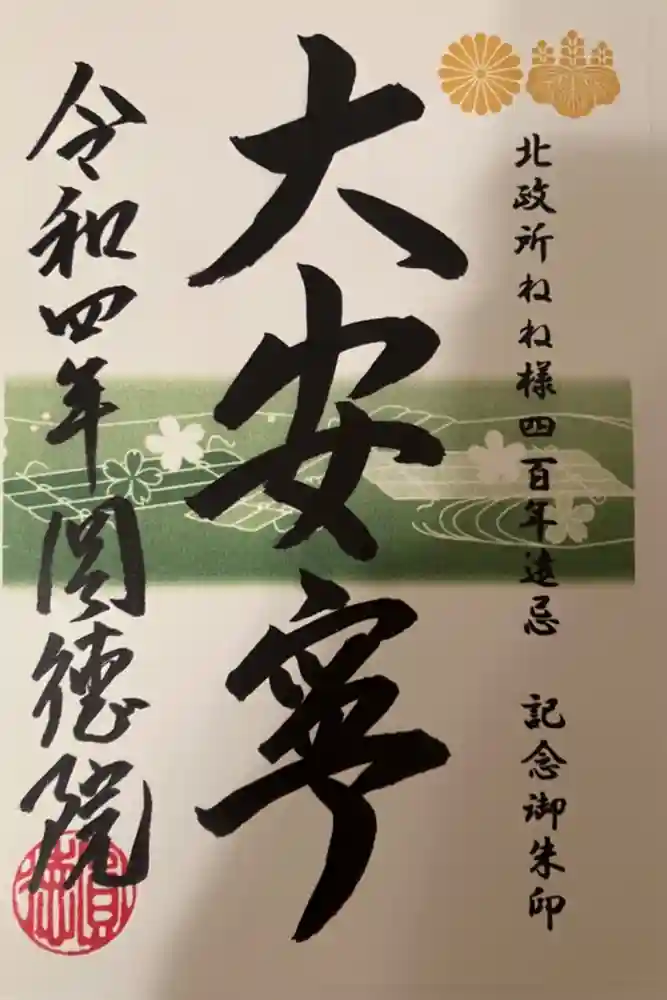 北政所ねね様四百年遠忌　記念御朱印
大安寧
令和四年圓德院